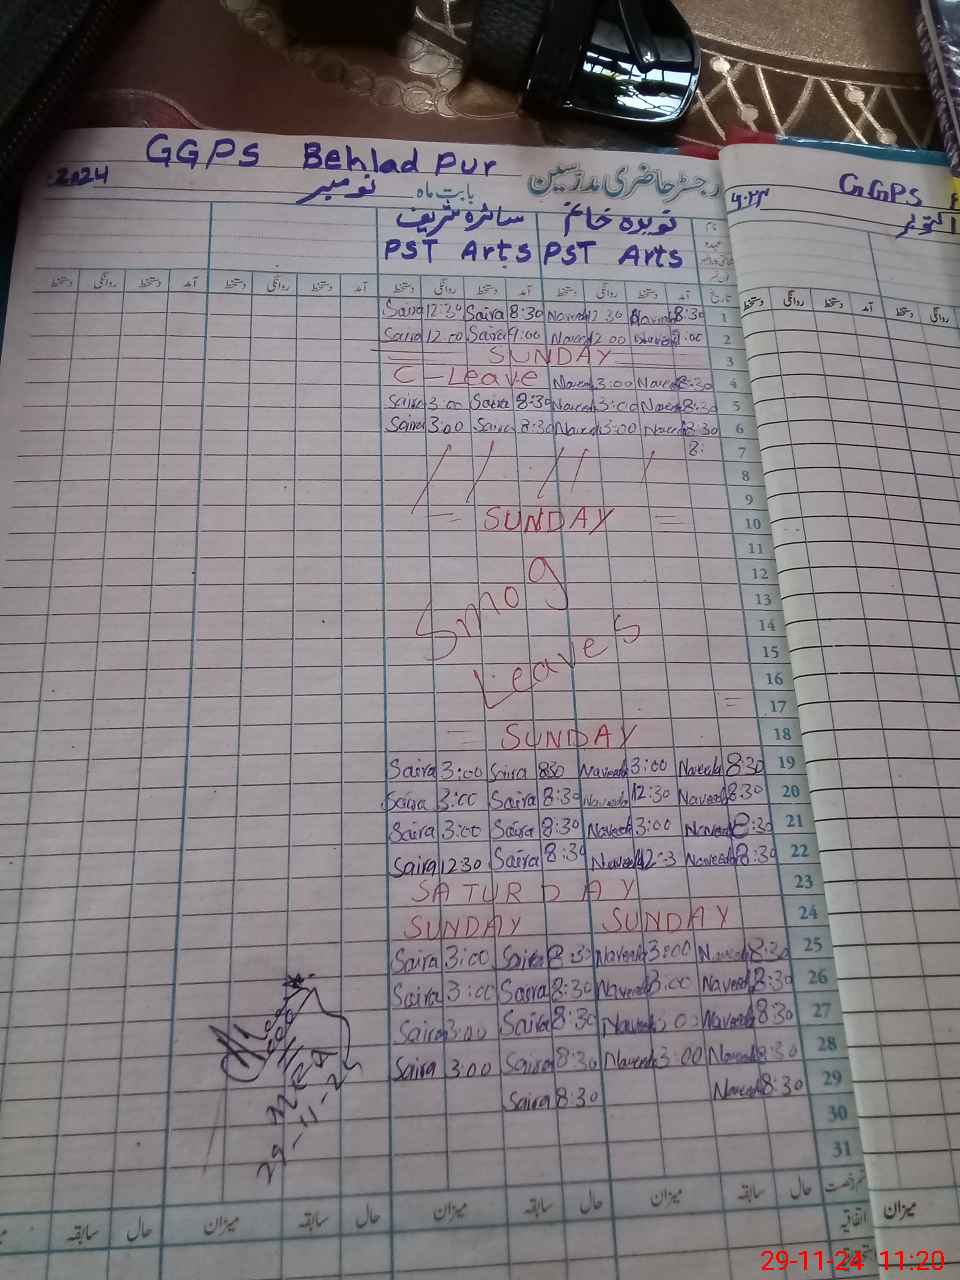 GGPS Behlad Pur
رجسٹر حاضری مدرسین
بابت ماہ نومبر 2024
GGPS
سائرہ شریف
PST Arts PST Arts
دستخط روانگی دستخط آمد دستخط روانگی دستخط آمد دستخط روانگی دستخط آمد دستخط روانگی دستخط آمد تاریخ
Saira 12:30 Saira 8:30 Naveeda 12:30 Naveeda 8:30 1
Saira 12:00 Saira 9:00 Naveeda 12:00 Naveeda 9:00 2
SUNDAY 3
C-Leave Naveeda 3:00 Naveeda 8:30 4
Saira 3:00 Saira 8:30 Naveeda 3:00 Naveeda 8:30 5
Saira 3:00 Saira 8:30 Naveeda 3:00 Naveeda 8:30 6
8: 7
8
9
= SUNDAY = 10
11
12
Smog 13
14
15
Leaves 16
= 17
= SUNDAY 18
Saira 3:00 Saira 8:30 Naveeda 3:00 Naveeda 8:30 19
Saira 3:00 Saira 8:30 Naveeda 12:30 Naveeda 8:30 20
Saira 3:00 Saira 8:30 Naveeda 3:00 Naveeda 8:30 21
Saira 12:30 Saira 8:30 Naveeda 12:3 Naveeda 8:30 22
SATURDAY 23
SUNDAY SUNDAY 24
Saira 3:00 Saira 8:30 Naveeda 3:00 Naveeda 8:30 25
Saira 3:00 Saira 8:30 Naveeda 3:00 Naveeda 8:30 26
Saira 3:00 Saira 8:30 Naveeda 3:00 Naveeda 8:30 27
Saira 3:00 Saira 8:30 Naveeda 3:00 Naveeda 8:30 28
Saira 8:30 Naveeda 8:30 29
30
31
MEA
29-11-2
سابقہ حال میزان سابقہ حال میزان سابقہ حال میزان سابقہ حال
اتفاقیہ
میزان
29-11-24 11:20